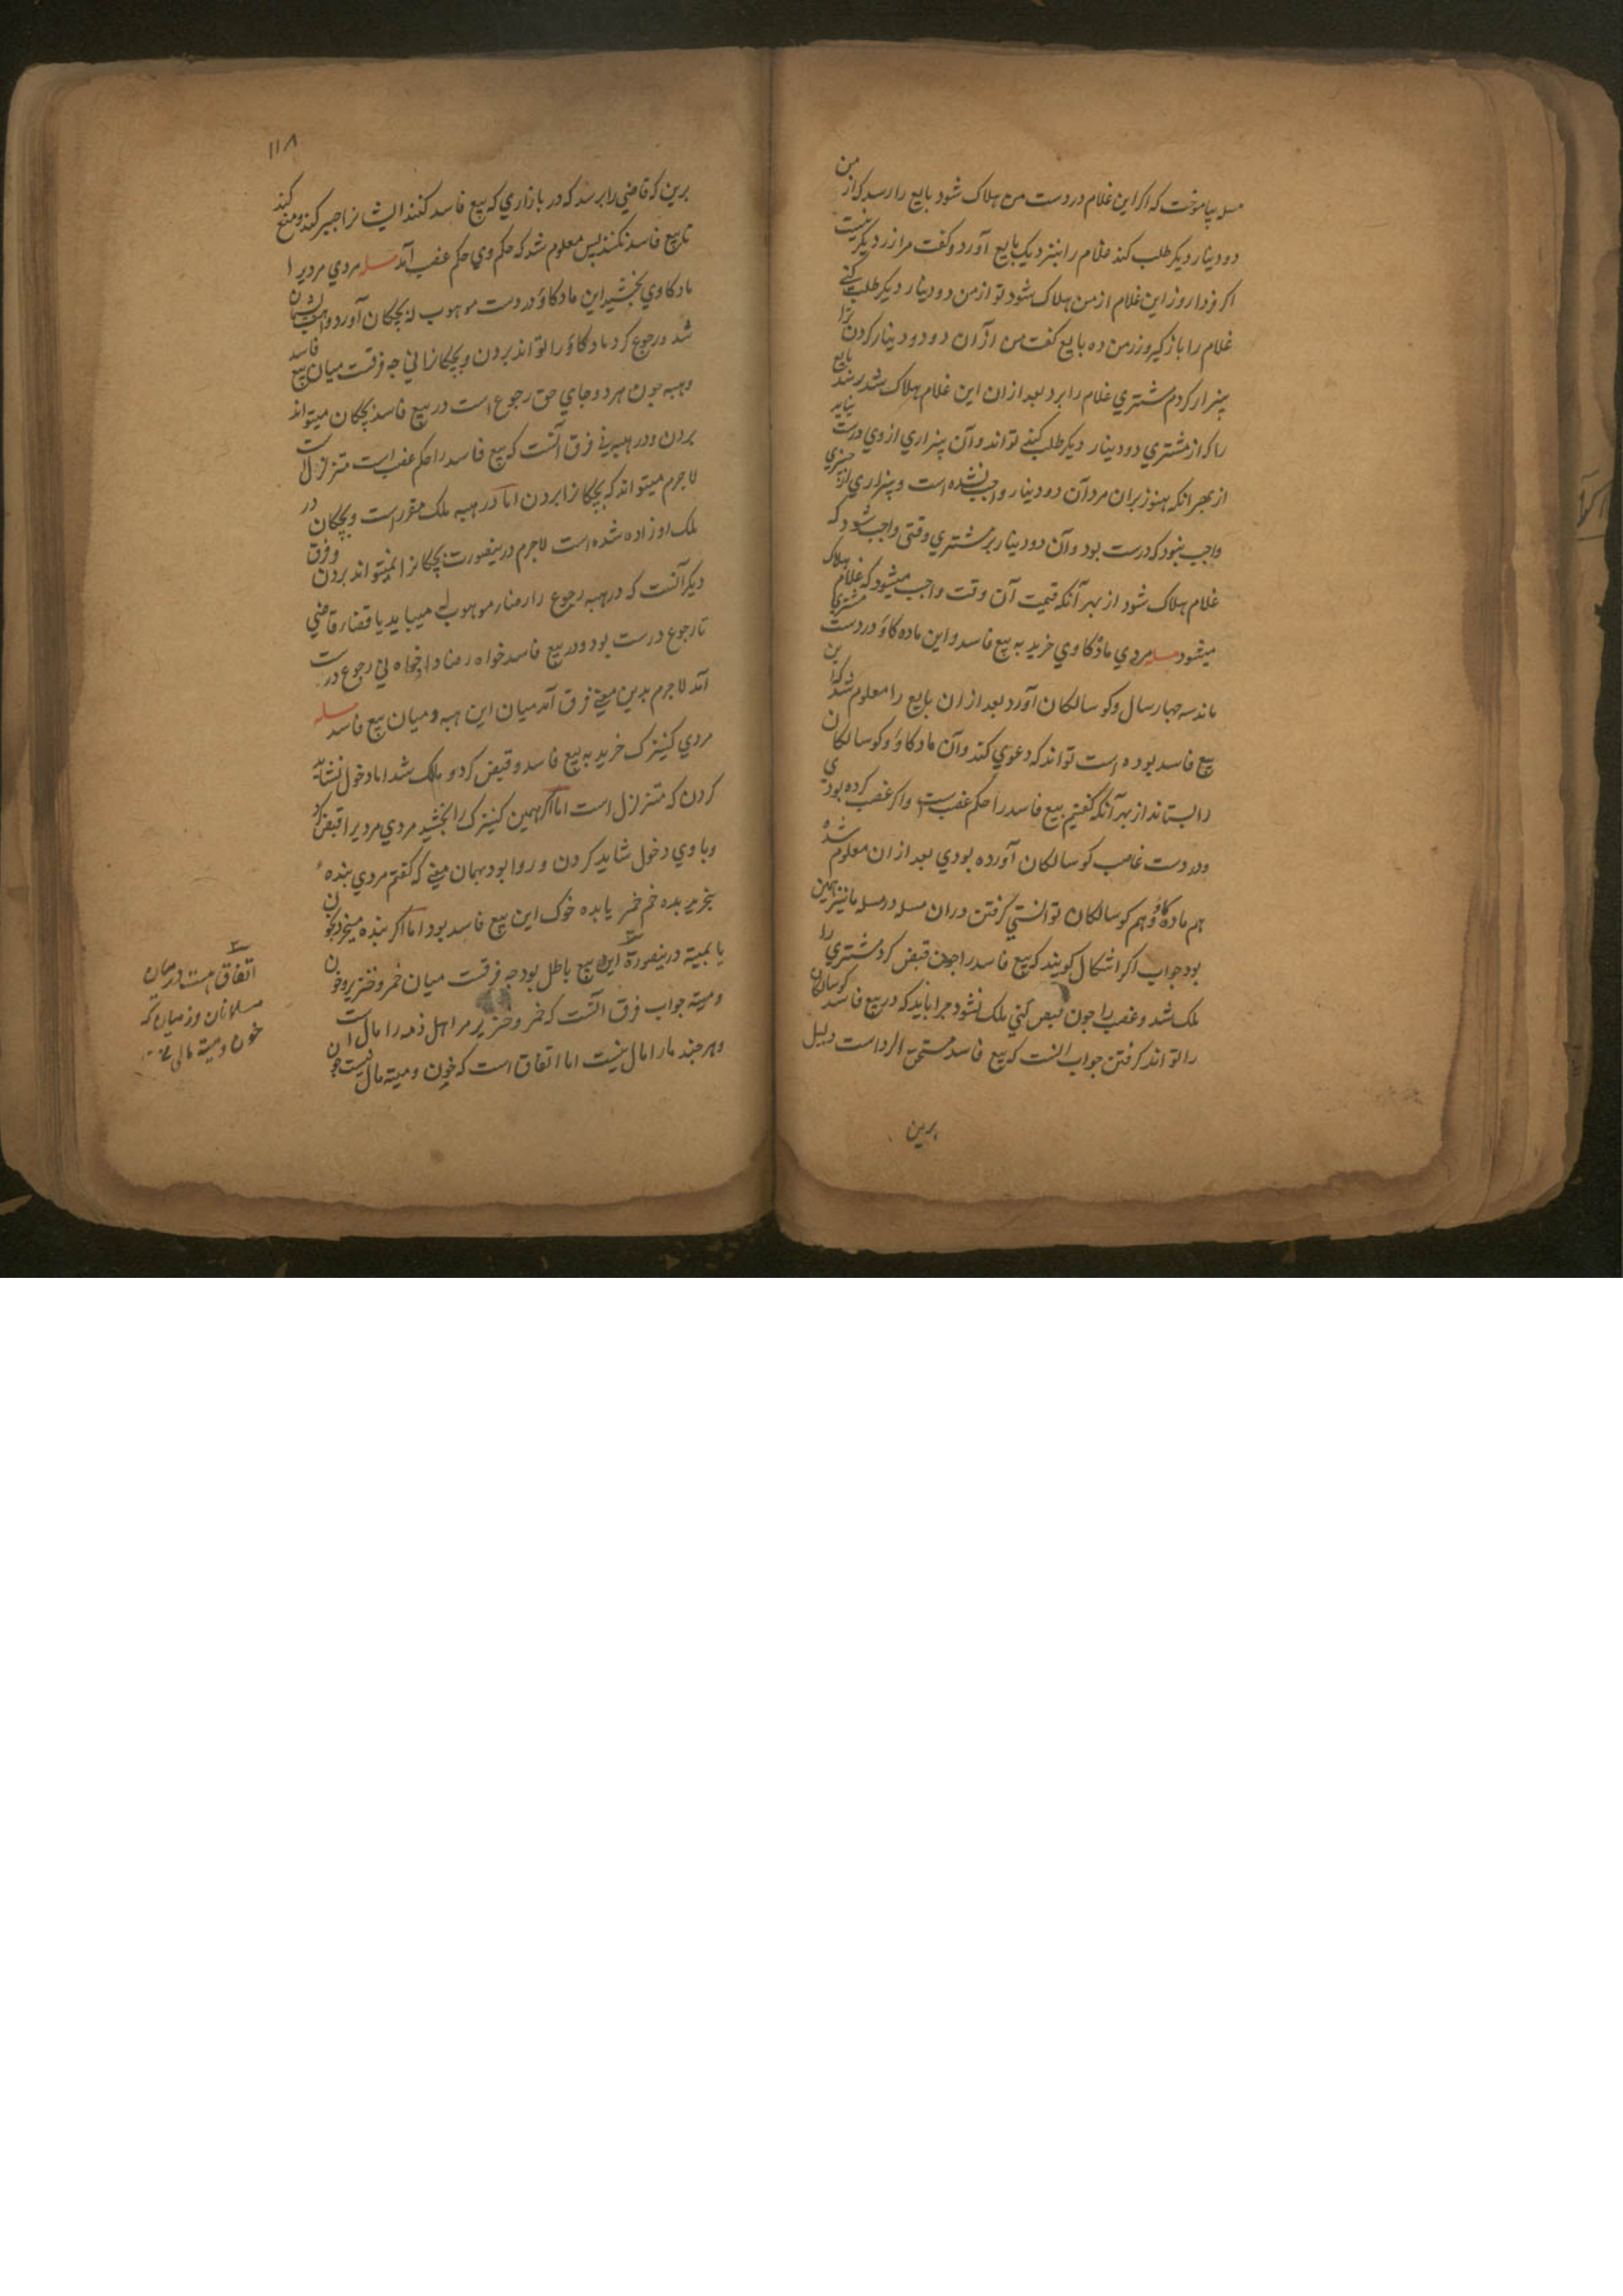 مسله بیاموخت که اکر این غلام در دست من هلاک شود بایع را رسد که از من
دو دینار دیکر طلب کند غلام را بنزدیک بایع آورد و کفت مرا زر دیکر نیست
اکر فردا روز این غلام از من هلاک شود تو از من دو دینار دیکر طلب کنی
غلام را باز کیر و زر من ده بایع کفت من از آن دو دو دینار کردن ترا
بیزار کردم مشتری غلام را برد بعد از ان این غلام هلاک شد رسد بایع
را که از مشتری دو دینار دیکر طلب کند تواند و آن بیزاری از وی درست نیاید
از بهر انکه هنوز بران مرد آن دو دینار واجب نشده است و بیزاری از چیزی
واجب نبود که درست بود و آن دو دینار بر مشتری وقتی واجب شود که
غلام هلاک شود از بهر آنکه قیمت آن وقت واجب میشود که غلام هلاک
میشود مسله مردی ماده کاوی خرید به بیع فاسد و این ماده کاو در دست مشتری
ماند سه چهار سال و کوسالکان آورد بعد از ان بایع را معلوم شد که این
بیع فاسد بوده است تواند که دعوی کند و آن ماده کاو و کوسالکان
را بستاند از بهر آنکه کفتیم بیع فاسد را حکم غصب است و اکر غصب کرده بودی
و در دست غاصب کوسالکان آورده بودی بعد از ان معلوم شده
هم ماده کاو و هم کوسالکان توانستی کرفتن دران مسله در مسله ما نیز همین
بود جواب اکر اشکال کویند که بیع فاسد را چون قبض کرد مشتری را
ملک شد و غصب را چون قبض کنی ملک نشود چرا باید که در بیع فاسد کوسالکان
را تواند کرفتن جواب انست که بیع فاسد مستحق الرد است دلیل
برین
۱۱۸
برین که قاضی را برسد که در بازاری که بیع فاسد کنند ایشانرا جبر کند و منع کند
تا بیع فاسد نکنند پس معلوم شد که حکم وی حکم غصب آمد مسله مردی مردیرا
مادکاوی بخشید این مادکاو در دست موهوب له بچکان آورد واهب پشیمان
شد و رجوع کرد مادکاو را تواند بردن و بچکانرا نی چه فرقست میان بیع فاسد
و هبه چون هر دو جای حق رجوع است در بیع فاسد بچکان میتواند
بردن و در هبه نی فرق آنست که بیع فاسد را حکم غصب است متزلزل است
لاجرم میتواند که بچکانرا بردن اما در هبه ملک مقرر است و بچکان در
ملک او زاده شده است لاجرم درینصورت بچکانرا نمیتواند بردن و فرق
دیکر آنست که در هبه رجوع را رضاء موهوب له میباید یا قضاء قاضی
تا رجوع درست بود و در بیع فاسد خواه رضا داد خواه نی رجوع درست
آمد لاجرم بدین معنی فرق آمد میان این هبه و میان بیع فاسد مسله
مردی کنیزک خرید به بیع فاسد و قبض کرد و ملک شد اما دخول نشاید
کردن که متزلزل است اما اکر همین کنیزک را بخشید مردی مردیرا قبض کرد
و با وی دخول شاید کردن و روا بود بهمان معنی که کفتم مردی بنده
بخرید بده خم خمر یا بده خوک این بیع فاسد بود اما اکر بنده میخرد بخون
یا بمیته درینصورة این بیع باطل بود چه فرقست میان خمر و خنزیر و خون
و میته جواب فرق انست که خمر و خنزیر مر اهل ذمه را مال است
و هر چند مار امال نیست اما اتفاق است که خون و میته مال نیست چون
اتفاق هست در میان
مسلمانان و ذمیان که
خون و میته مال